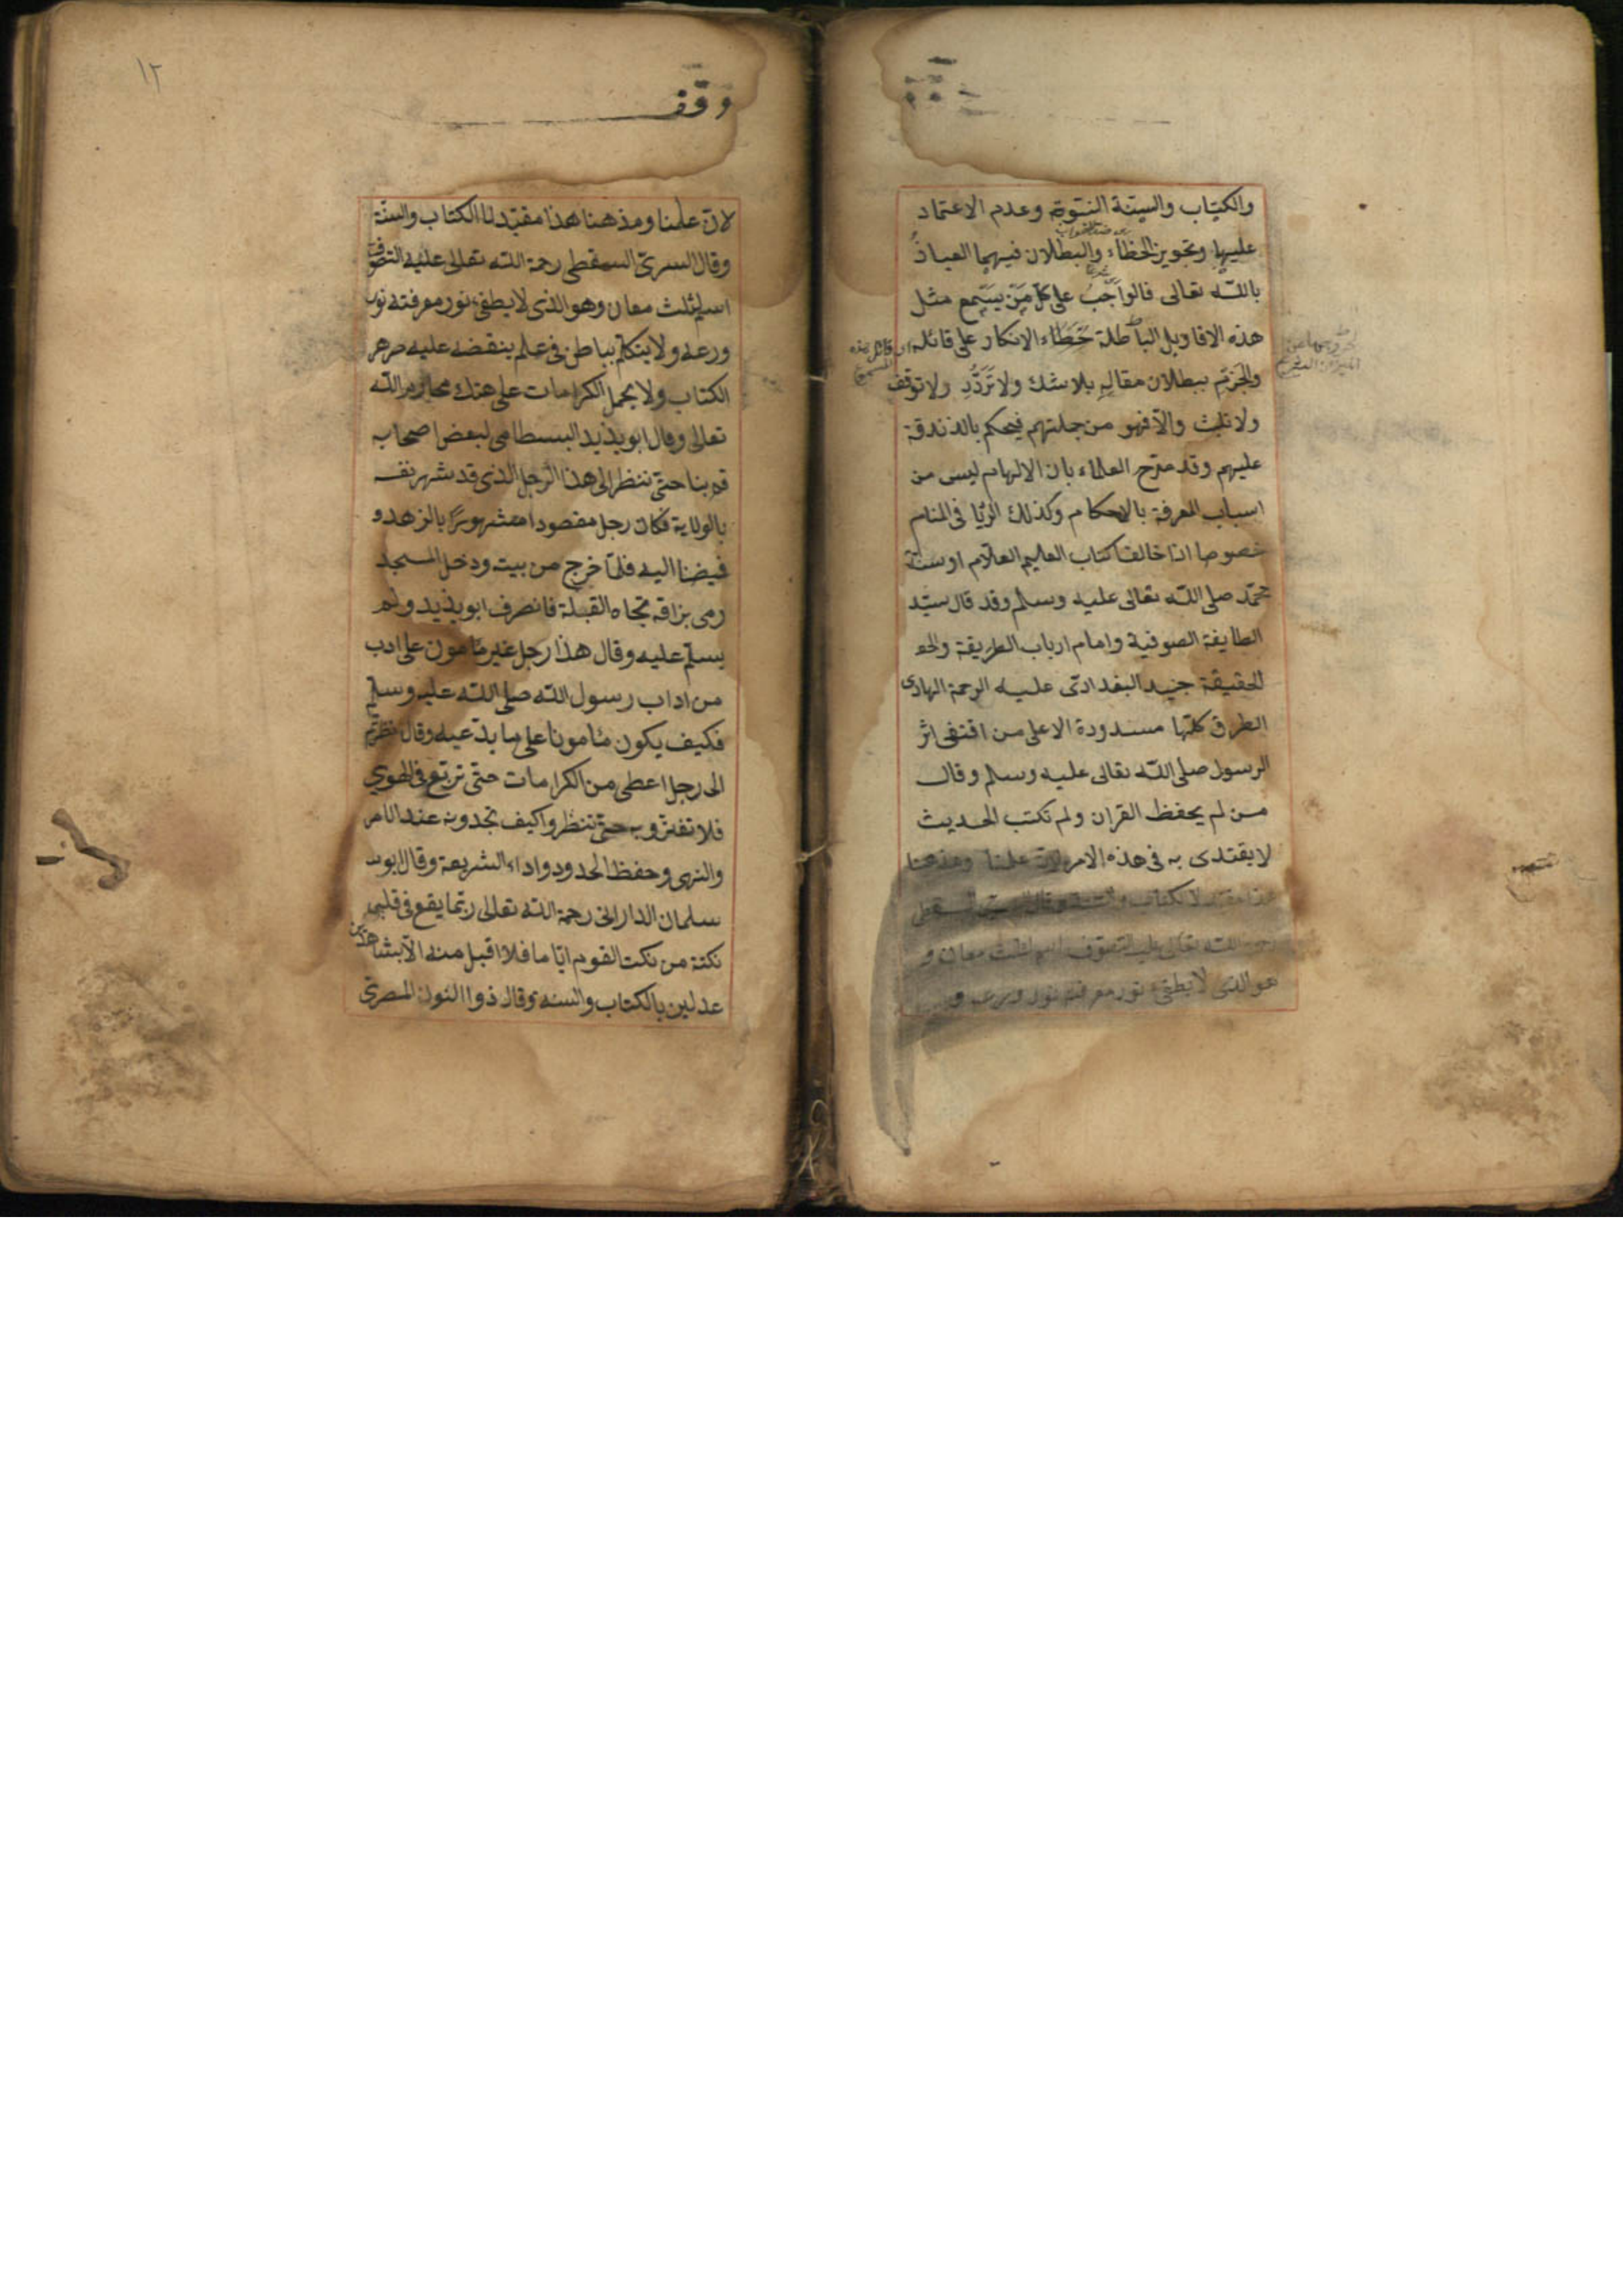 والكتاب والسنة النبوية وعدم الاعتماد
عليها وتجويز الخطاء والبطلان فيهما العياذ
بالله تعالى فالواجب على كل من يستمع مثل
هذه الاقاويل الباطلة خطاء الانكار على قائله
والجزم ببطلان مقاله بلا شك ولا تردد ولا توقف
ولا تلبث والا فهو من جملتهم فيحكم بالذندقة
عليهم وقد صرح العلماء بان الالهام ليس من
اسباب المعرفة بالاحكام وكذلك الرؤيا فى المنام
خصوصا اذا خالفا كتاب العليم العلام او سنة
محمد صلى الله تعالى عليه وسلم وقد قال سيد
الطايفة الصوفية وامام ارباب الطريقة
الحقيقة جنيد البغدادى عليه الرحمة الهادى
الطرق كلها مسدودة الا على من اقتفى اثر
الرسول صلى الله تعالى عليه وسلم وقال
من لم يحفظ القران ولم تكتب الحديث
لا يقتدى به فى هذه الامر لان علمنا ومذهبنا
هذا مقيد لا بكتاب والسنة وقال السرى السقطى
رحمة الله تعالى عليه التصوف اسم لثلث معان و
هو الذى لا يطفئ نور معرفته نور ورعه و
وقف
١٢
لان علمنا ومذهبنا هذا مقيد لنا الكتاب والسنة
وقال السرى السقطى رحمة الله تعالى عليه التصوف
اسم لثلث معان وهو الذى لا يطفئ نور معرفته نور
ورعه ولا يتكلم بباطن فى علم ينقضه عليه
الكتاب ولا يحمل الكرامات على هتك محارم الله
تعالى وقال ابو يذيد البسطامى لبعض اصحابه
قم بنا حتى ننظر الى هذا الرجل الذى قد شهر نفسه
بالولاية فكان رجل مقصودا مشهورا بالزهد و
فمضنا اليه فلما خرج من بيته ودخل المسجد
رمى بزاقه تجاه القبلة فانصرف ابو يذيد ولم
يسلم عليه وقال هذا رجل غير مأمون على ادب
من اداب رسول الله صلى الله عليه وسلم
فكيف يكون مأمونا على ما يدعيه وقال نظرتم
الى رجل اعطى من الكرامات حتى تربع فى الهوى
فلا تغتروبه حتى تنظروا كيف تجدونه عند الامر
والنهى وحفظ الحدود واداء الشريعة وقال ابو
سلمان الدارانى رحمة الله تعالى ربما يقع فى قلبى
نكتة من نكت القوم اياما فلا اقبل منه الا بشاهدين
عدلين بالكتاب والسنة وقال ذو النون المصرى